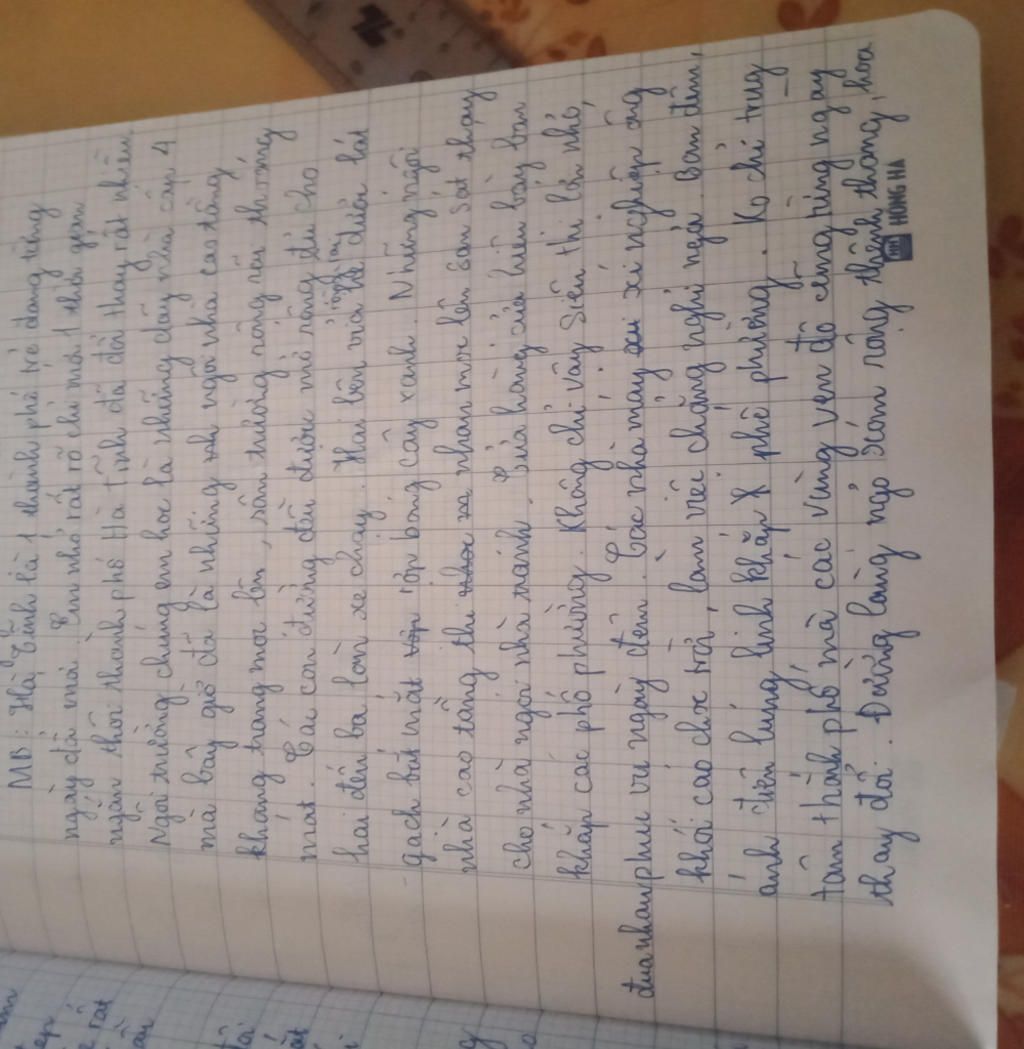 MB: Hà Tĩnh là 1 thành phố trẻ đang từng
ngày đổi mới. Em nhớ rất rõ chỉ mới 1 thời gian
ngắn thôi thành phố Hà Tĩnh đã đổi thay rất nhiều.
Ngôi trường chúng em học là những dãy nhà cấp 4
mà bây giờ đã là những ngôi nhà cao tầng,
khang trang mọc lên, sân trường rộng rãi thoáng
mát. Các con đường đều được mở rộng đủ cho
hai đến ba làn xe chạy. Hai bên vỉa hè được lát
gạch bắt mắt rợp bóng cây xanh. Những ngôi
nhà cao tầng thi nhau mọc lên san sát thay
cho nhà ngói nhà tranh. Cửa hàng, cửa hiệu bày bán
khắp các phố phường. Không chỉ vậy siêu thị lớn nhỏ,
đua nhau phục vụ ngày đêm. Các nhà máy xí nghiệp ống
khói cao chọc trời, làm việc chẳng nghỉ ngơi. Ban đêm,
ánh điện lung linh khắp phố phường. Ko chỉ trung
tâm thành phố mà các vùng ven đô cũng từng ngày
thay đổi. Đường làng ngõ xóm rộng thênh thang, hoa
HONG HA